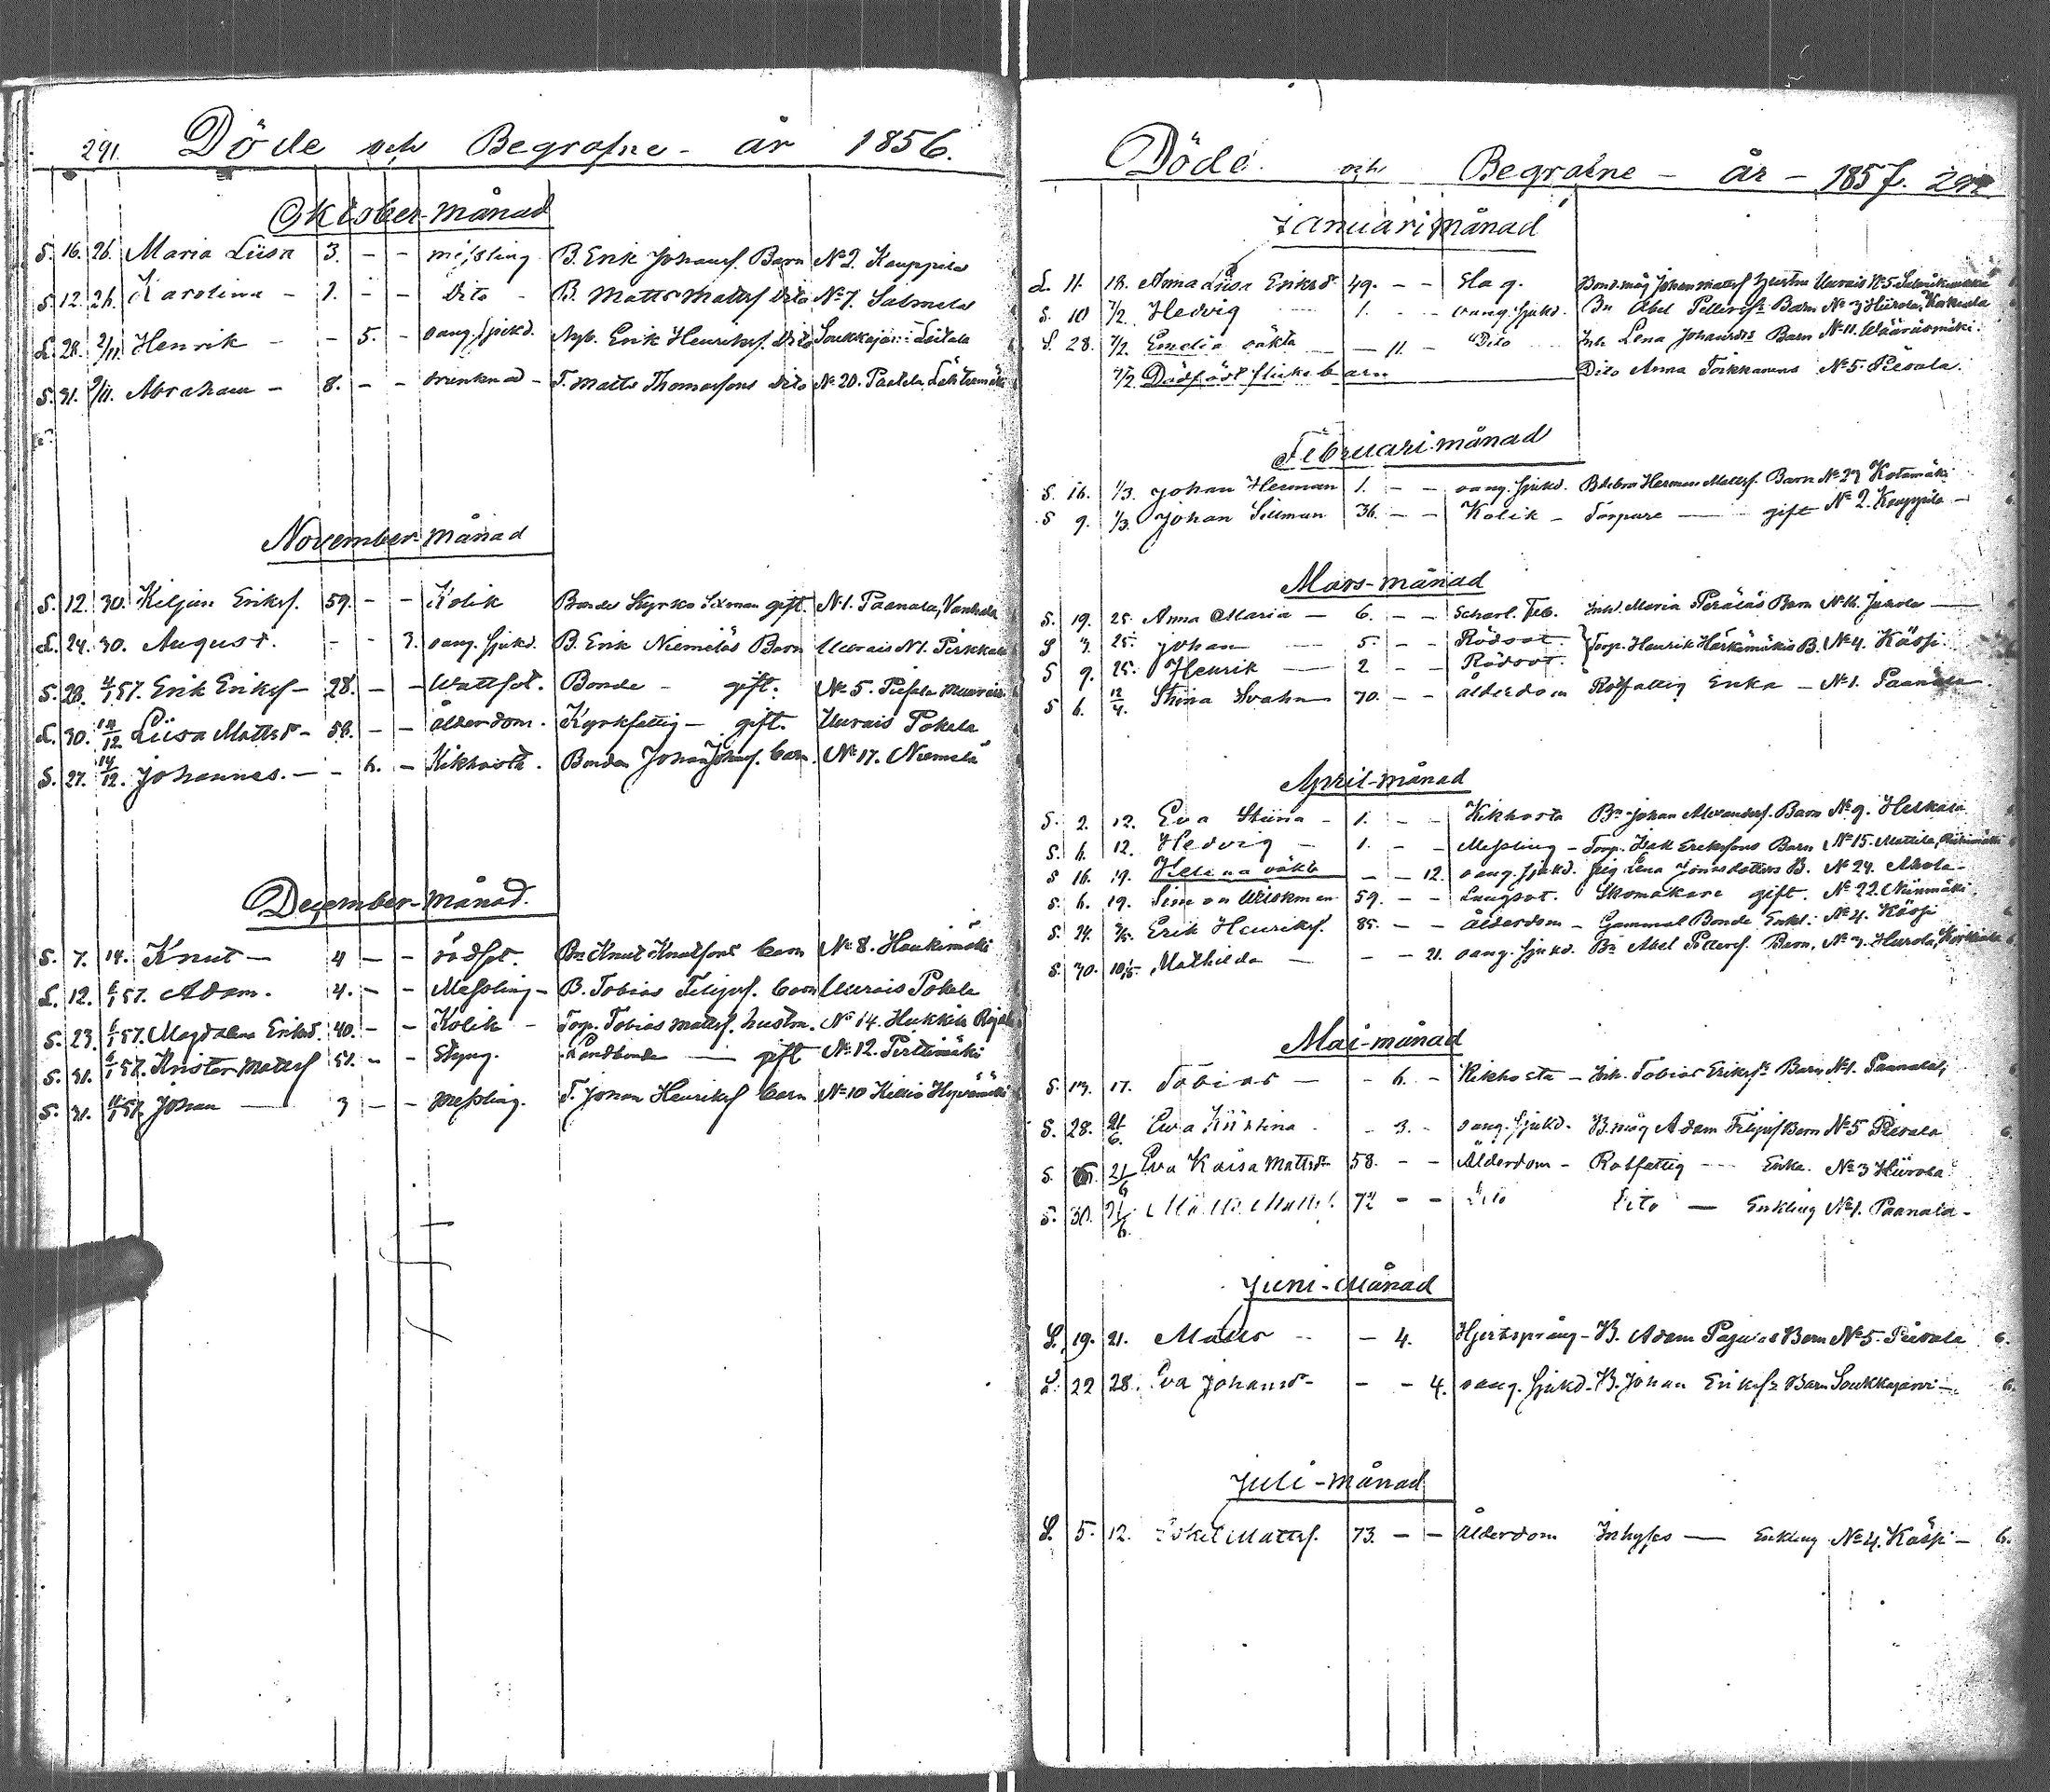 291. Döde och Begrafne - år 1856.
Oktober månad
S. 16. 26. Maria Liisa 3. - - missling B. Erik Johansf. Barn No 2. Kauppila
S. 12. 26. Karolina - 1. - - Dito - B. Matts Mattsf. Dito No 7. Salmela
L. 28. 2/11 Henrik - - 5. - oang. sjukd. Nyb. Erik Henriksf. Dito Soukkajärvi Leitala
S. 31. 9/11. Abraham - 8. - - drunknad - T. Matts Thomasfons Dito No 20. Paatela
November månad
S. 12. 30. Kiljan Eriksf. 59. - - Kolik Bonde Kyrko gift. N 1. Paanala, Vanhala
L. 24. 30. August. - - 3. oang. sjukd. B. Erik Niemeläs Barn Uurais N 1. Pirkkala
S. 28. 4/1 57. Erik Eriksf - 28. - - Wattsot. Bonde - gift. No 5.
L. 30. 14/12 Liisa Mattsd - 58. - - ålderdom. Kyrkfattig - gift. Uurais Pokela
S. 27. 14/12. Johannes. - - 6. - Kikhosta. Bonden Johan Johansf. barn. No 17. Niemelä
December månad.
S. 7. 14. Knut - 4 - - rödsot. Bn Knut Knutsons barn No 8. Haukimäki
L. 12. 6/1 57. Adam. 4. - - Messling - B. Tobias Filipsf. barn Uurais Pokela
S. 23. 6/1 57. Magdalena Eriksd. 40. - - Kolik - Torp. Tobias Mattsf. hustru. No 14. Hukkila
S. 31. 6/1 57. Krister Mattsf 51. - - Styng. Landbonde - gift No 12. Perttimäki
S. 31. 57. Johan - 3 - - messling. T. Johan Henriksf barn No 10
Döde och Begrafne - år - 1857. 292
Januari månad
L. 11. 18. Anna Liisa Eriksd 49. - - Slag. Bond.måg Johan Mattsf hustru Uurais No 5
S. 10 7/2. Hedvig 1. - - oang. sjukd. Bn Abel Barn No 3 Hiirola,
S. 28. 7/2. Emelia oäkta - 11. - Dito Inh. Lena Johansdrs Barn No 11.
7/2. Dödfödt flickebarn Dito Anna No 5. Piesala.
Februari månad
S. 16. 1/3. Johan Herman 1. - - oang. sjukd. Herman Mattsf. Barn No 27 Kotamäki
S 9. 1/3. Johan Sillman 36. - - Kolik - Torpare - gift No 2. Kauppila -
Mars-månad
S. 19. 25. Anna Maria - 6. - - Scharl. feb. Inh. Maria Perälas Barn N 16. Jukola -
S 7. 25. Johan - 5. - - Rödsot. Torp. Henrik Härkämäkis B. No 4. Käsji
S 9. 25. Henrik - 2 - - Rödsot.
S 6. 12/4. Stina Svahn 70. - - ålderdom Rotfattig Enka - No 1. Paanala
April-månad
S. 2. 12. Eva Stiina - 1. - - Kikhosta Bn Johan Alexandersf. Barn No 9.
S. 6. 12. Hedvig - 1. - - Messling - Torp. Isak Eriksfons Barn No 15. Mattila,
S 16. 19. Helena oäkta - - 12. oang. sjukd. Pig. Lena Jonasdotters B. No 24. Ahola -
S. 6. 19. Simon Wiskman 59. - - Lungsot. Skomakare gift. No 22. Niinimäki.
S. 24. Erik Henriksf. 85. - - Ålderdom - Gammal Bonde Enkl. No 4. Käsji
S. 30. 10/5. Mathilda - - - 21. oang. sjukd. Bn Abel Barn. No 3. Hiirola,
Mai-månad
S. 13. 17. Tobias - - 6. - Kikhosta - Inh. Tobias Eriksfs Barn No 1. Paanala
S. 28. 21/6. Eva Kristina - 3. - oang. sjukd. B.måg Adam Filipsf Barn No 5 Piesala 6.
S. 21/6 Eva Kaisa Mattsdr 58. - - Ålderdom - Rotfattig - Enka. No 3 Hiirola
S. 30. 21/6. Matts Mattsf. 72 - - Dito Dito - Enkling No 1. Paanala -
Juni-Månad
L. 19. 21. Matts - 4. Hjertsprång - B. Adam Barn No 5. Piesala 6.
L. 22 28. Eva Johansd - - - 4. oang. sjukd. - B. Johan Eriksfs Barn Soukkajärvi - 6.
Juli-månad
L. 5. 12. Eskel Mattsf. 73. - - ålderdom Inhyses - Enkling No 4. Käsji - 6.